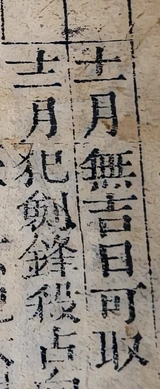 十一月無吉日可取
十二月犯劍鋒殺占